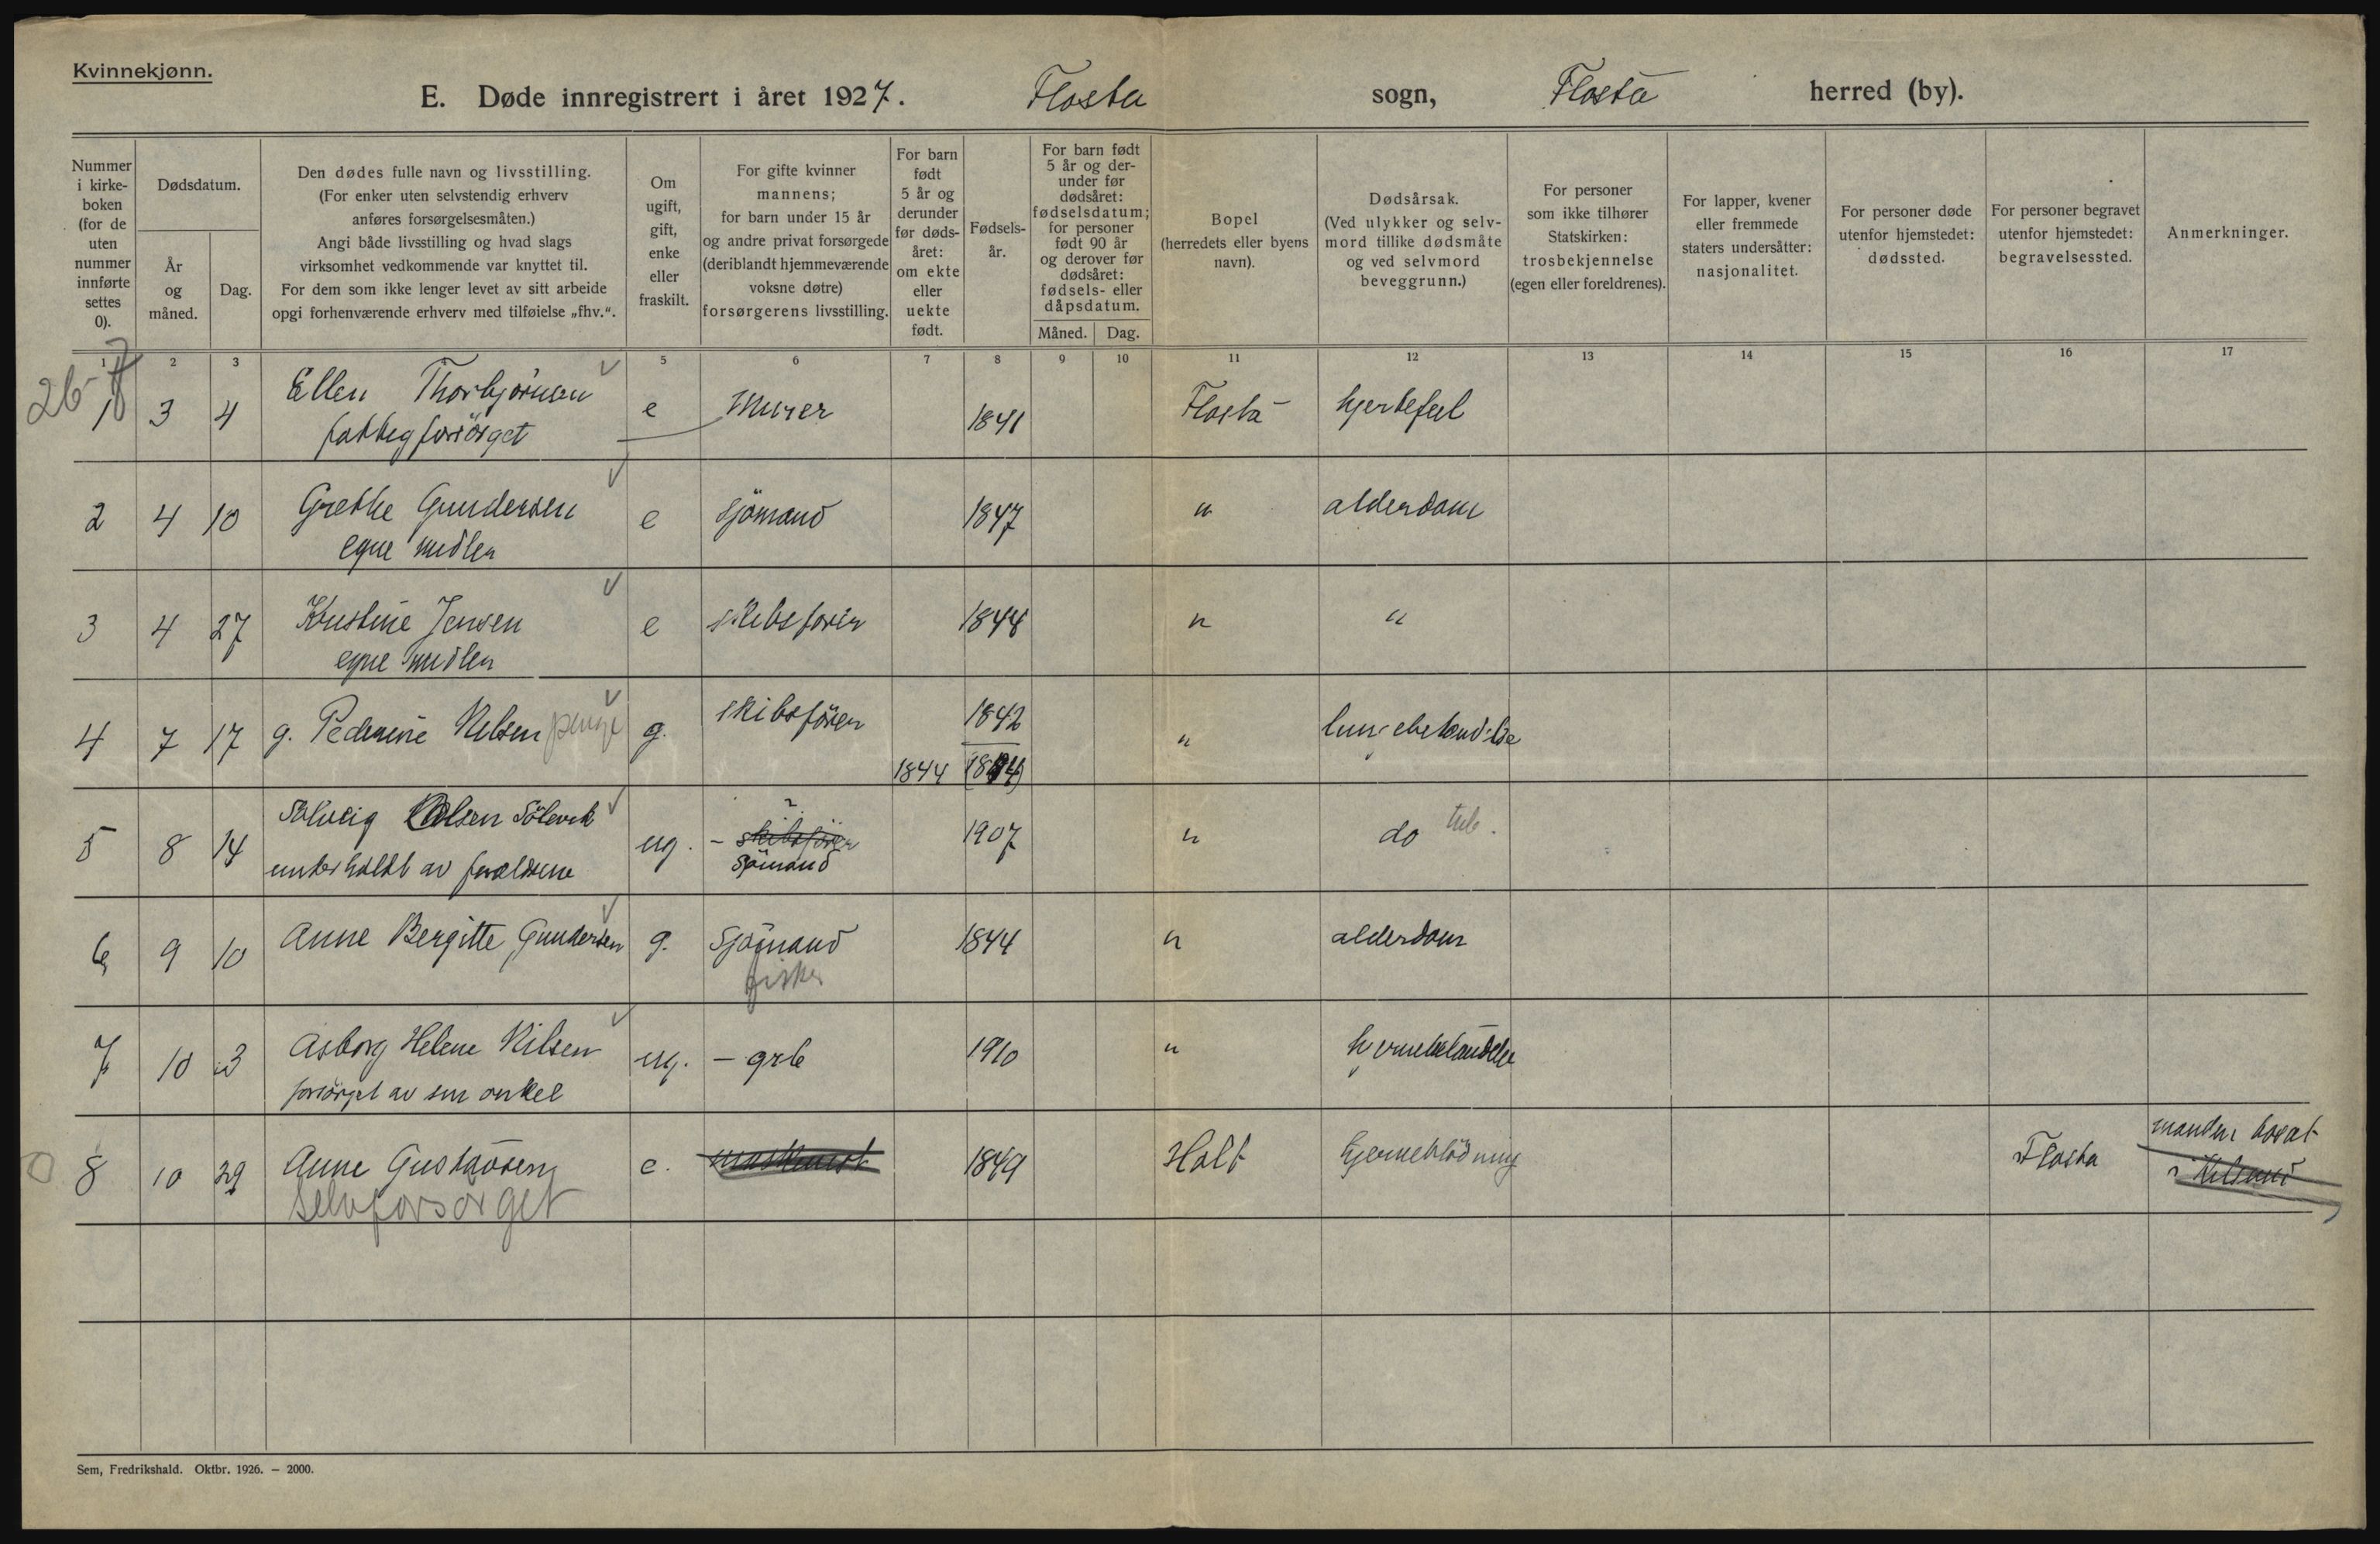 Kvinnekjønn.
E. Døde innregistrert i året 1927. Flosta sogn, Flosta herred (by).
Nummer i kirke- boken (for de uten nummer innførte settes 0).
Dødsdatum.
År og måned.
Dag.
Den dødes fulle navn og livsstilling.
(For enker uten selvstendig erhverv
anføres forsørgelsesmåten.)
Angi både livsstilling og hvad slags
virksomhet vedkommende var knyttet til.
For dem som ikke lenger levet av sitt arbeide
opgi forhenværende erhverv med tilføielse „fhv.“.
Om ugift, gift, enke eller fraskilt.
For gifte kvinner
mannens;
for barn under 15 år
og andre privat forsørgede
(deriblandt hjemmeværende
voksne døtre)
forsørgerens livsstilling.
For barn født 5 år og derunder før døds- året: om ekte eller uekte født.
Fødsels- år.
For barn født 5 år og der- under før dødsåret: fødselsdatum; for personer født 90 år og derover før dødsåret: fødsels- eller dåpsdatum.
Måned. Dag.
Bopel
(herredets eller byens
navn).
Dødsårsak.
(Ved ulykker og selv-
mord tillike dødsmåte
og ved selvmord
beveggrunn.)
For personer
som ikke tilhører
Statskirken:
trosbekjennelse
(egen eller foreldrenes).
For lapper, kvener
eller fremmede
staters undersåtter:
nasjonalitet.
For personer døde
utenfor hjemstedet:
dødssted.
For personer begravet
utenfor hjemstedet:
begravelsessted.
Anmerkninger.
1 2 3 5 6 7 8 9 10 11 12 13 14 15 16 17
26-7
1 3 4 Ellen Thorbjörnsen e Murer 1841 Flosta hjertefeil
fattigforsörget
2 4 10 Grethe Gundersen e Sjömand 1847 " alderdom
egne midler
3 4 27 Kristine Jensen e skibsförer 1844 " "
egne midler
4 7 17 g. Pederine Nilsen g. skibsförer 1842 " lungebetændelse
1844
5 8 14 Solveig Olsen Sölevik ug. - skibsförer 1907 " do tub.
underholdt av forældrene sjömand
6 9 10 Anne Bergitte Gundersen g. Sjömand 1844 " alderdom
fisker
7 10 3 Asborg Helene Nilsen ug. - grb 1910 " hjernebetændelse
forsörget av sin onkel
0 8 10 29 Anne Gustavsen e. maskinist 1849 Holt hjerneblödning Flosta manden bosat
selvforsørget i Kilsund
Sem, Fredrikshald. Oktbr. 1926. — 2000.